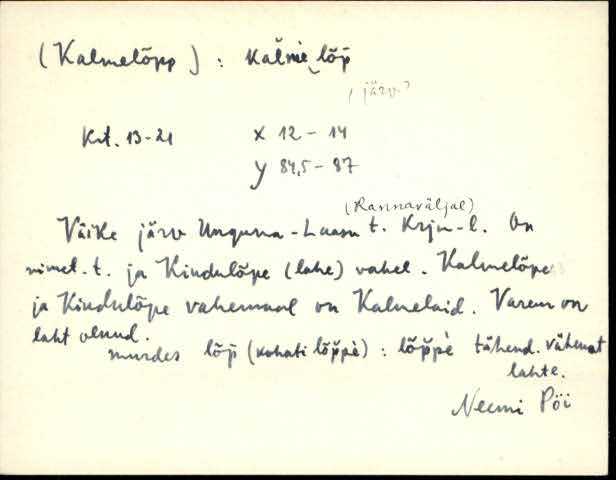 (Kalmelõpp) : kalme lõp̆
, järv?
Krt. 13-21 X 12 - 14
y 84,5 - 87
(Rannaväljal)
Väike järv Unguma - Laasu t. Krju-l. On
nimet. t. ja Kindulõpe (lahe) vahel. Kalmelõpe
ja Kindulõpe vahemaal on Kalmelaid. Varem on
laht olnud.
murdes lõp̆ (kohati lõp̆pè) : lõp̆pè tähend. vähemat
lahte.
Neemi Pöi